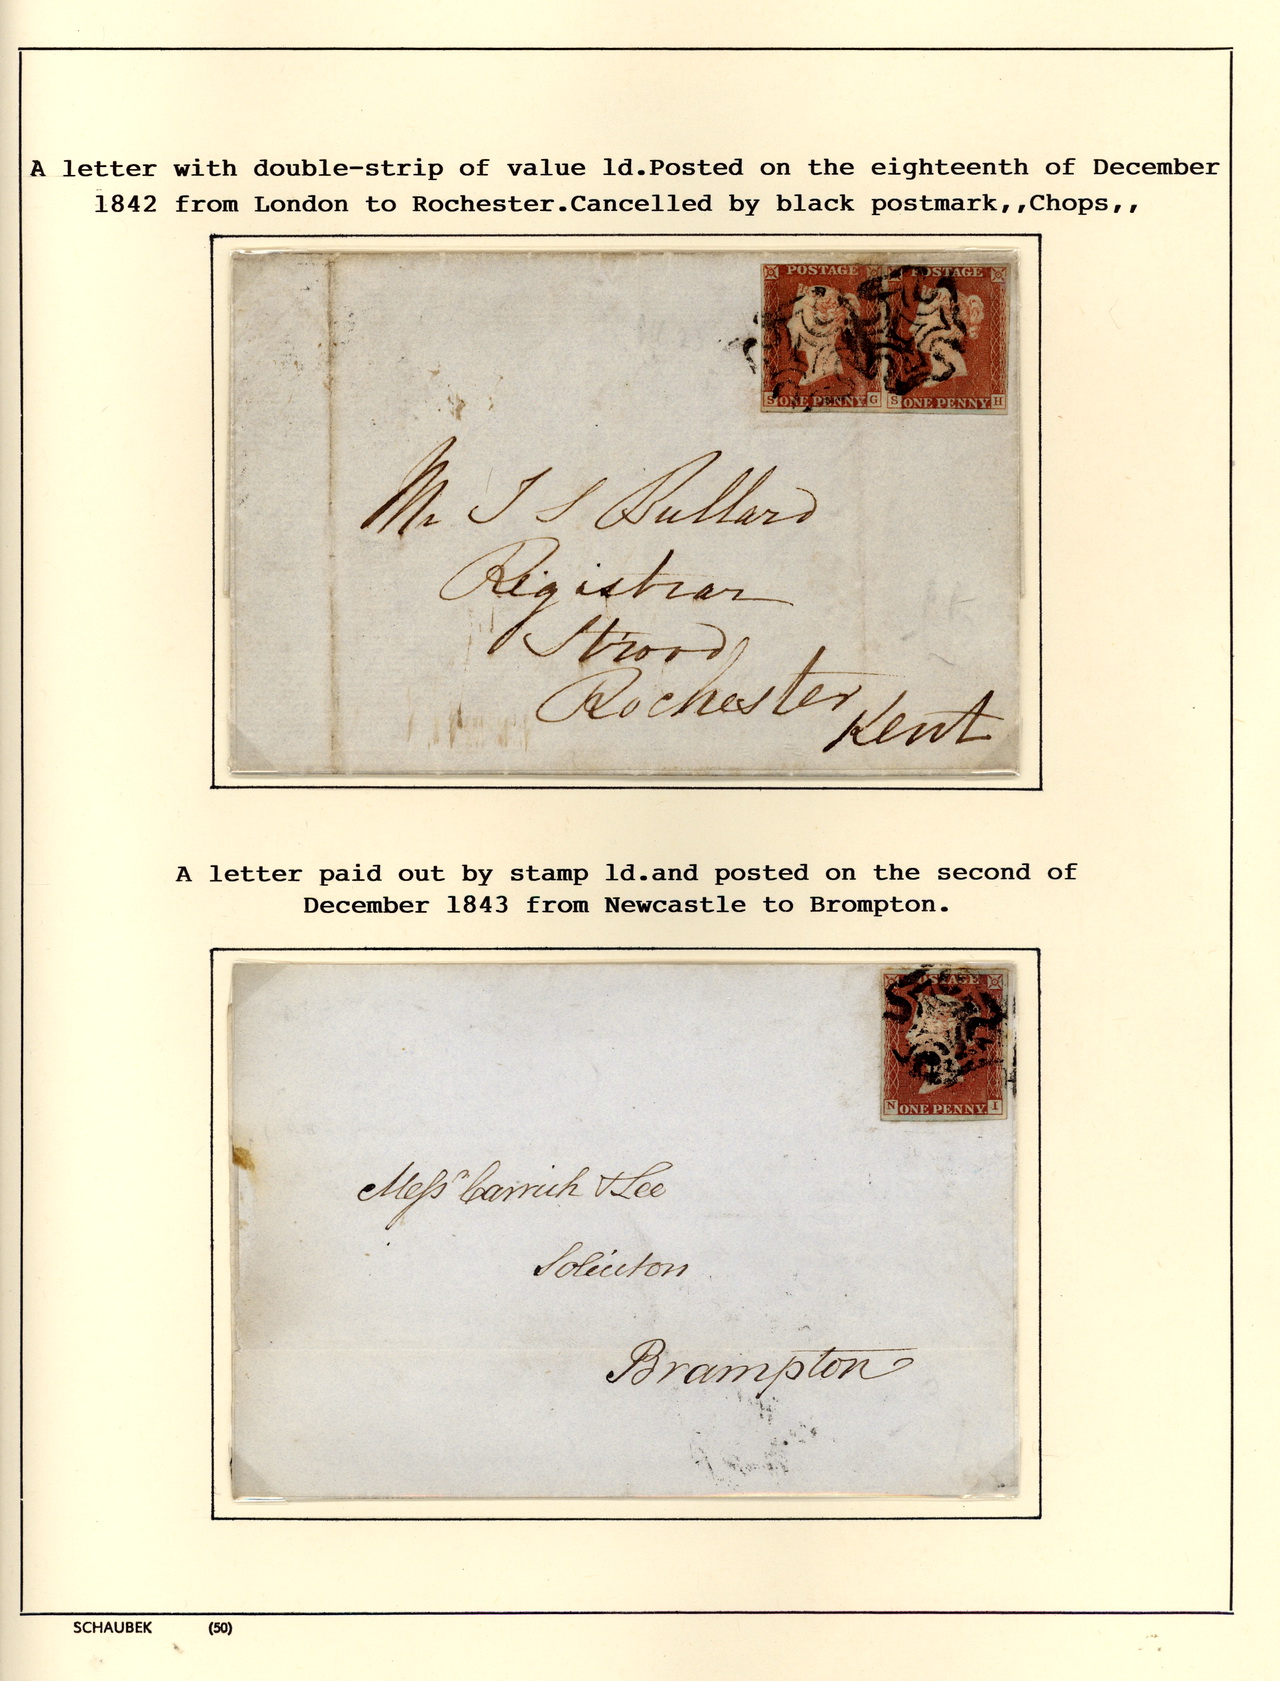 A letter with double-strip of value ld.Posted on the eighteenth of December
1842 from London to Rochester.Cancelled by black postmark,,Chops,,
POSTAGE POSTAGE
S ONE PENNY G S ONE PENNY H
Mr J S Bullard
Registrar
Strood
Rochester
Kent
A letter paid out by stamp ld.and posted on the second of
December 1843 from Newcastle to Brompton.
POSTAGE
N ONE PENNY I
Messrs Carrick & Lee
Solicitors
Brampton
SCHAUBEK (50)